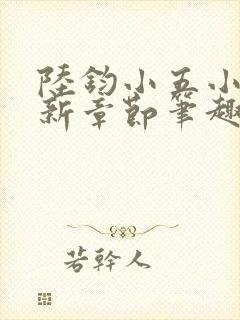 陸鈞小五小
新章節筆趣
若幹人